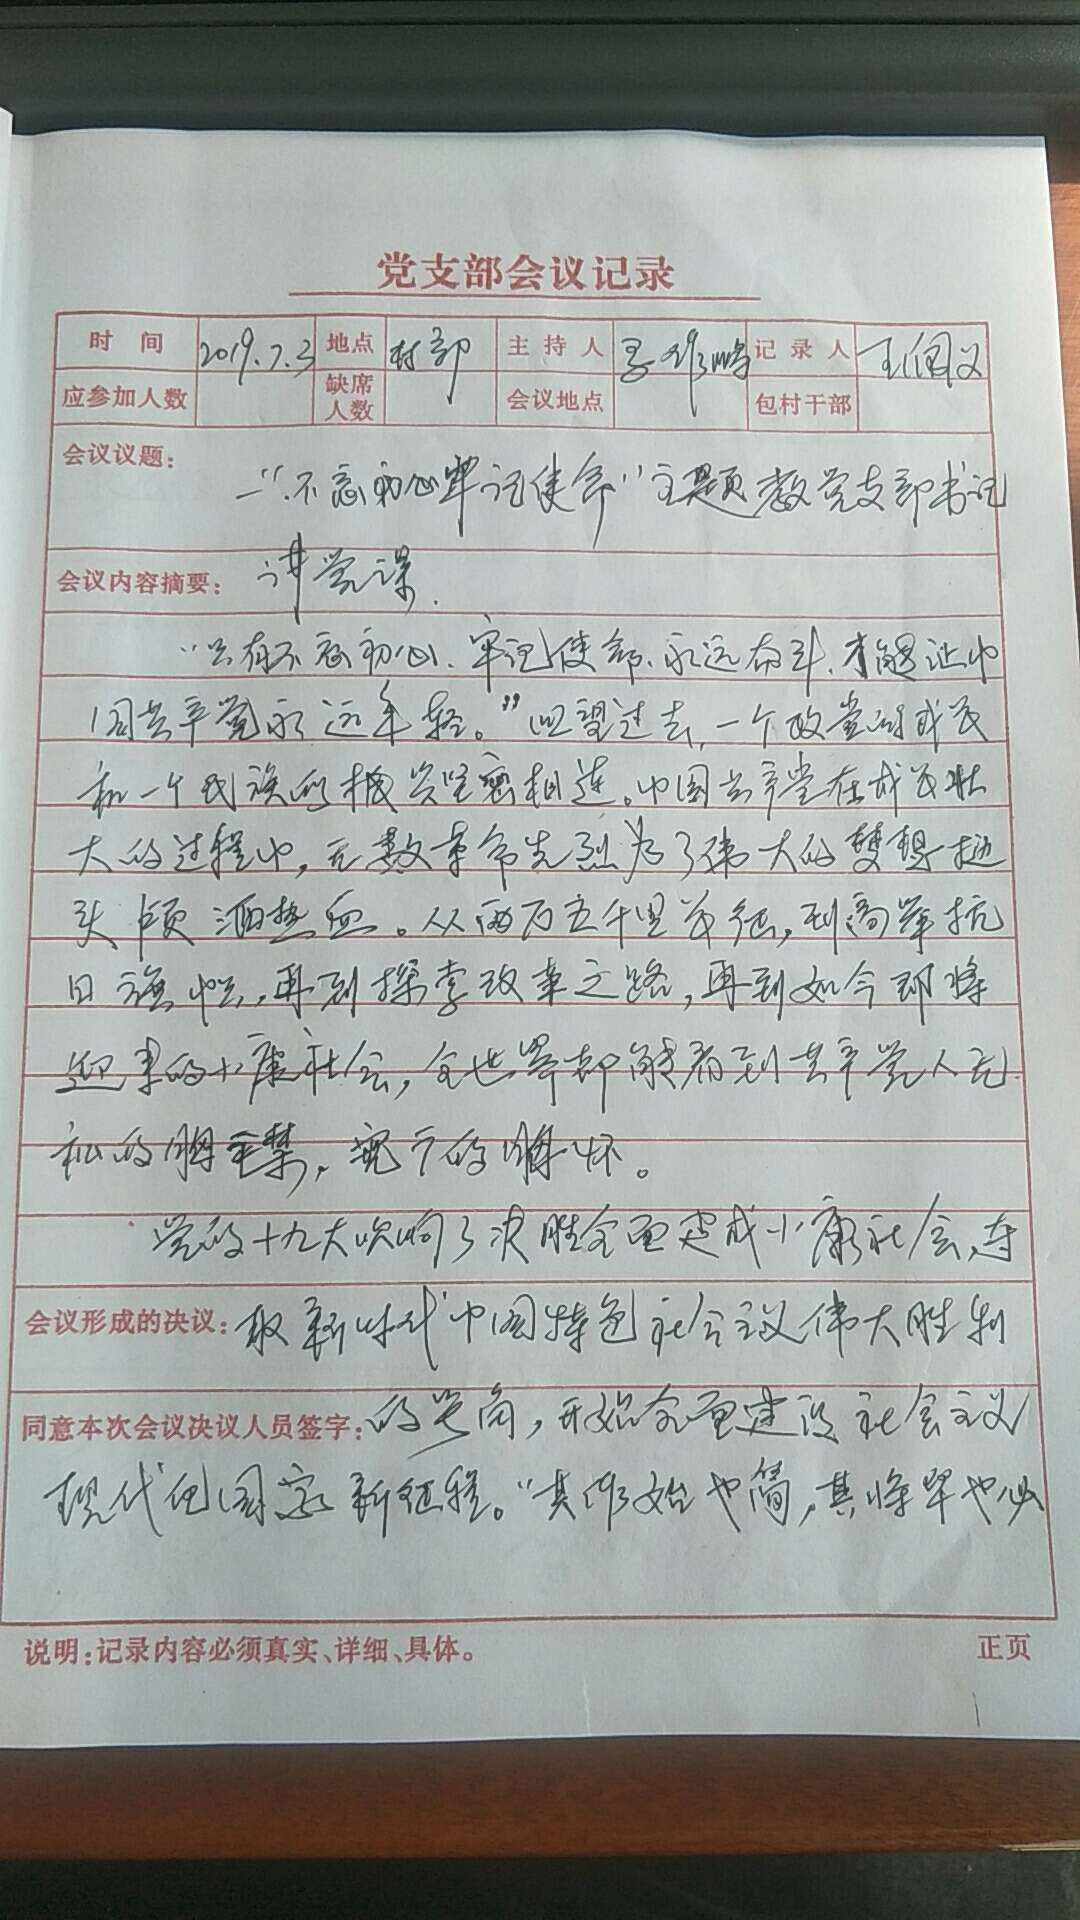 党支部会议记录
时间 2019.7.3 地点 村部 主持人 记录人 王国义
应参加人数 缺席人数 会议地点 包村干部
会议议题： 一“不忘初心牢记使命”主题教党支部书记
会议内容摘要： 讲党课.
“只有不忘初心、牢记使命、永远奋斗,才能让中
国共产党永远年轻。”回望过去,一个政党的成长
和一个民族的 紧密相连。中国共产党在成长壮
大的过程中,无数革命先烈为了伟大的梦想抛
头颅洒热血。从两万五千里长征,到高举抗
日旗帜,再到探索改革之路,再到如今即将
迎来的小康社会,全世界都能看到共产党人无
私的胸襟,宽广的胸怀。
党的十九大吹响了决胜全面建成小康社会,夺
会议形成的决议: 取新时代中国特色社会主义伟大胜利
同意本次会议决议人员签字: 的号角,开始全面建设社会主义
现代化国家新征程。“其作始也简,其将毕也必
说明:记录内容必须真实、详细、具体。 正页
1